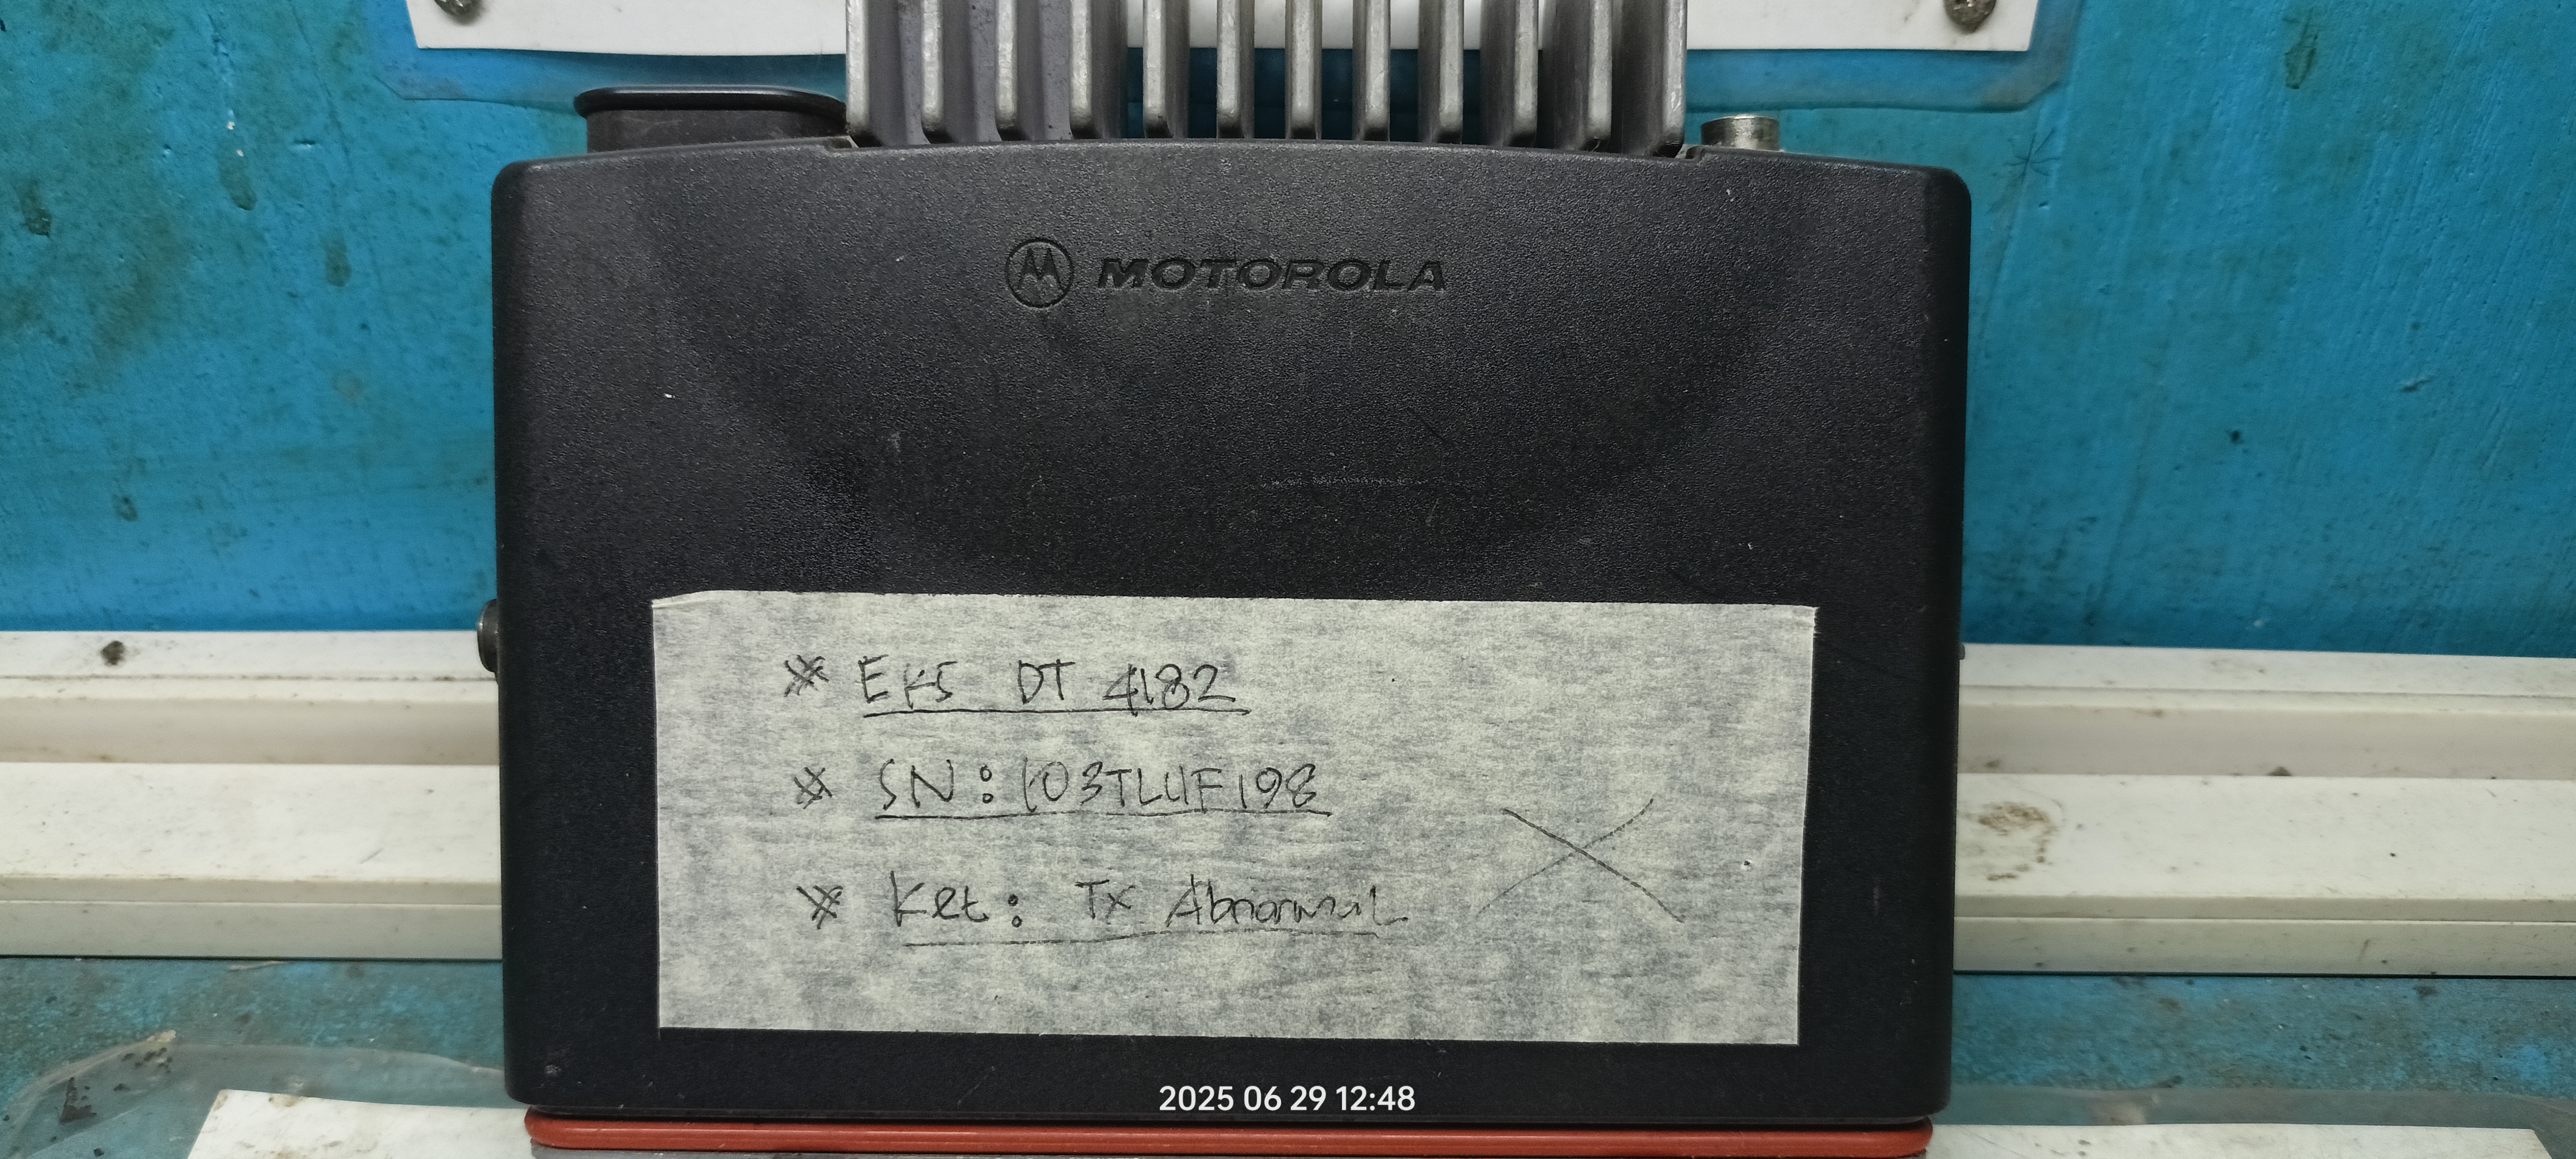 MOTOROLA
EKS DT 4182
SN: 103TLUF198
Ket: Tx Abnormal
2025 06 29 12:48